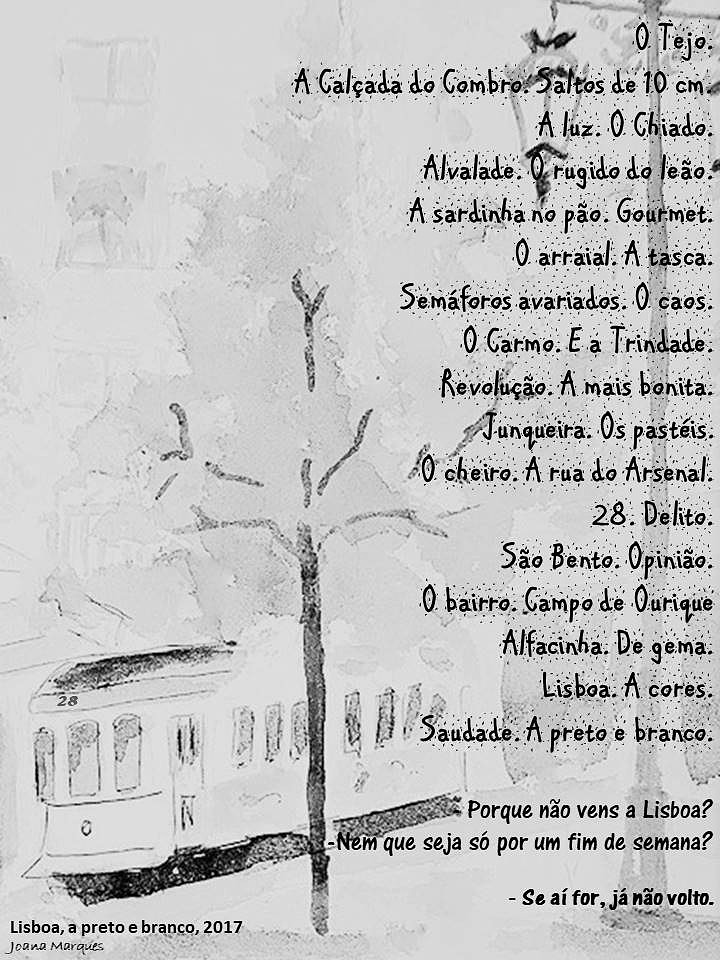 O Tejo.
A Calçada do Combro. Saltos de 10 cm.
A luz. O Chiado.
Alvalade. O rugido do leão.
A sardinha no pão. Gourmet.
O arraial. A tasca.
Semáforos avariados. O caos.
O Carmo. E a Trindade.
Revolução. A mais bonita.
Junqueira. Os pastéis.
O cheiro. A rua do Arsenal.
28. Delito.
São Bento. Opinião.
O bairro. Campo de Ourique
Alfacinha. De gema.
Lisboa. A cores.
Saudade. A preto e branco.
28
- Porque não vens a Lisboa?
-Nem que seja só por um fim de semana?
- Se aí for, já não volto.
Lisboa, a preto e branco, 2017
Joana Marques